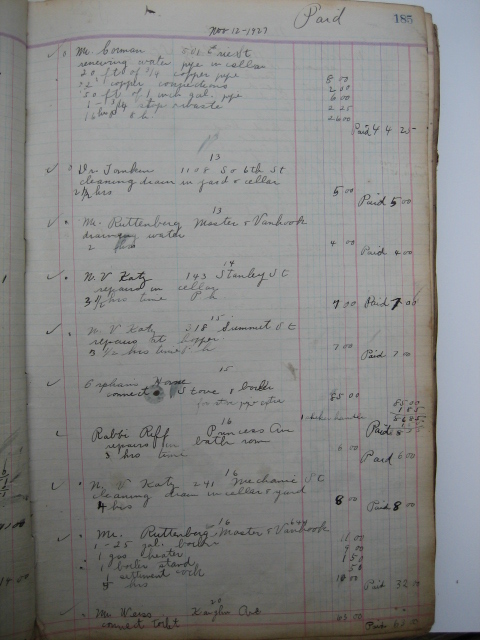 185
Nov 12-1927
Paid
Mr. Gorman 501 St
renewing water pipe in cellar
20 ft of 3/4 copper pipe 8 00
copper connections 2 00
50 ft of 1 inch gal. pipe 6 00
1 - 3/4 stop & waste 2 25
16 hrs 26 00
Paid 44 25
13
Dr. 1108 So 6th St
cleaning drain in yard & cellar
2 1/2 hrs 5 00 Paid 5 00
13
Mr. Ruttenberg Master & Vanhook
water
2 hrs 4 00 Paid 4 00
14
N. V. Katz 143 Stanley St
repairs in cellar
3 1/2 hrs time P. h 7 00 Paid 7 00
15
N. V. Katz 318 Summit St
repairs
3 1/2 hrs time 7 00 Paid 7 00
15
Orphan Home
connect Stove & boiler
85 00
85 00
Paid
16
Rabbi Riff Princess Ave
repairs in bath room
3 hrs time 6 00 Paid 6 00
16
N. V. Katz 241 Mechanic St
cleaning drain in cellar & yard
4 hrs 8 00 Paid 8 00
16
Mr. Ruttenberg Master & Vanhook
1 - 25 gal. boiler 11 00
1 gas heater 9 00
1 boiler stand 1 50
1 sediment cock 50
hrs 10 00 Paid 32 00
20
Mr. Kaighn Ave
connect toilet Paid